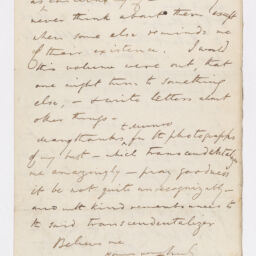 never think about them except
when some else reminds me
of their existence. I would
this volume were out, that
one might turn to something
else, – & write letters about
other things –
& Munro
Many thanks for the photographs
of my bust – which transcendentalize
me amazingly – pray goodness
it be not quite unrecognizable –
and with kind remembrances to
the said transcendentalizer
Believe me